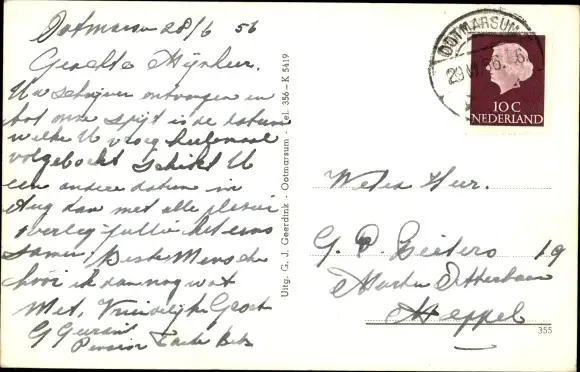 Ootmarsum 28/6 56
Geachte Mijnheer.
Uw schrijven ontvangen en
tot onze spijt is de datum
welke U vroeg helemaal
volgeboekt schikt U
een andere datum in
Aug dan met alle plezier
overleg jullie het eens
samen, Beste Mensen
hoor ik dan nog wat
Met, Vriendelijke Groet
G
Pension
Uitg. G. J. Geerdink - Ootmarsum - Tel. 356 - K 5419
OOTMARSUM
10 C
NEDERLAND
Weled Heer.
G. P. 19
Meppel
355